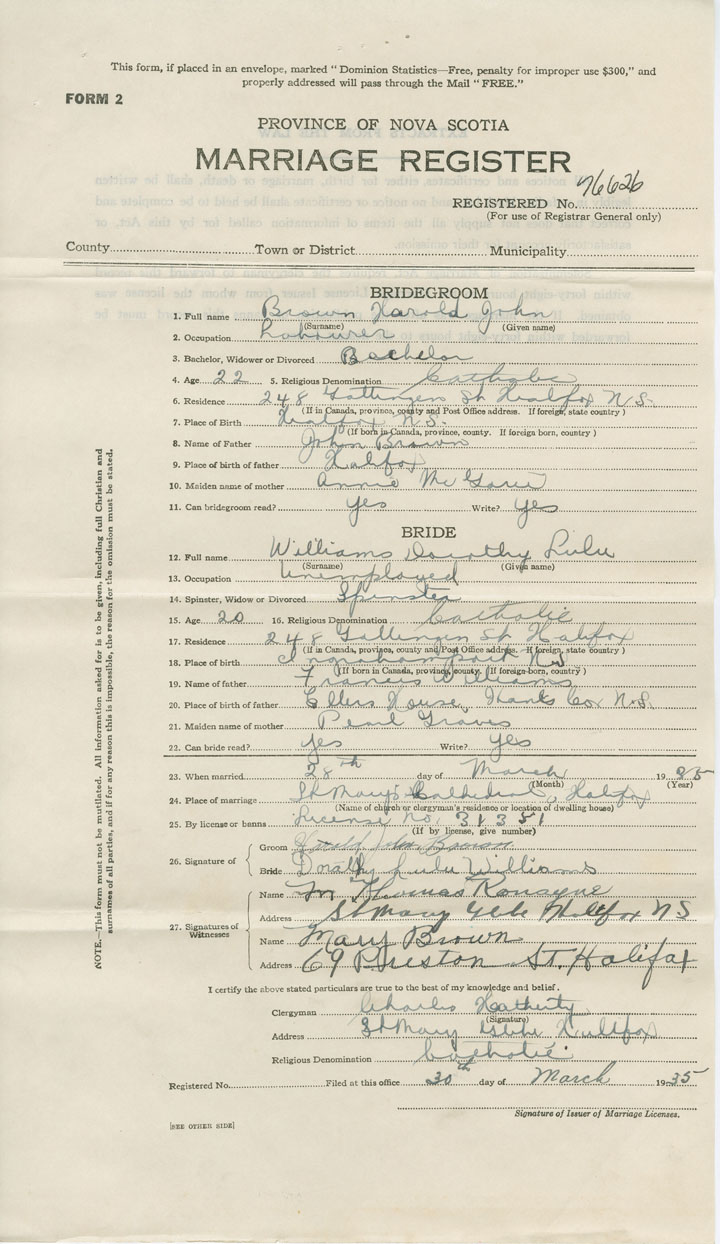 This form, if placed in an envelope, marked "Dominion Statistics—Free, penalty for improper use $300," and
properly addressed will pass through the Mail "FREE."
FORM 2
PROVINCE OF NOVA SCOTIA
MARRIAGE REGISTER
REGISTERED No. 76626
(For use of Registrar General only)
County Town or District Municipality
BRIDEGROOM
1. Full name Brown Harold John
(Surname) (Given name)
2. Occupation Labourer
3. Bachelor, Widower or Divorced Bachelor
4. Age 22 5. Religious Denomination Catholic
6. Residence 248 Gottingen St Halifax N.S.
(If in Canada, province, county and Post Office address. If foreign, state country)
7. Place of Birth Halifax N.S.
(If born in Canada, province, county. If foreign born, country)
8. Name of Father John Brown
9. Place of birth of father Halifax
10. Maiden name of mother Annie
11. Can bridegroom read? yes Write? yes
BRIDE
12. Full name Williams Dorothy Lulu
(Surname) (Given name)
13. Occupation Unemployed
14. Spinster, Widow or Divorced Spinster
15. Age 20 16. Religious Denomination Catholic
17. Residence 248 Gottingen St Halifax
(If in Canada, province, county and Post Office address. If foreign, state country)
18. Place of birth Ingramport N.S
(If born in Canada, province, county. If foreign-born, country)
19. Name of father Francis Williams
20. Place of birth of father Ellers House, Hants Co. N.S.
21. Maiden name of mother Pearl Graves
22. Can bride read? yes Write? yes
23. When married 28th day of March 1935
(Month) (Year)
24. Place of marriage St Mary's Cathedral, Halifax
(Name of church or clergyman's residence or location of dwelling house)
25. By license or banns License No. 31351
(If by license, give number)
26. Signature of
Groom Harold John Brown
Bride Dorothy Lulu Williams
27. Signatures of Witnesses
Name Thomas
Address St Mary Halifax N S
Name Mary Brown
Address 69 Preston St. Halifax
I certify the above stated particulars are true to the best of my knowledge and belief.
Clergyman Charles
(Signature)
Address St Mary Glebe Halifax
Religious Denomination Catholic
Registered No. Filed at this office 30th day of March 1935
Signature of Issuer of Marriage Licenses.
[SEE OTHER SIDE]
NOTE.—This form must not be mutilated. All information asked for is to be given, including full Christian and
surnames of all parties, and if for any reason this is impossible, the reason for the omission must be stated.